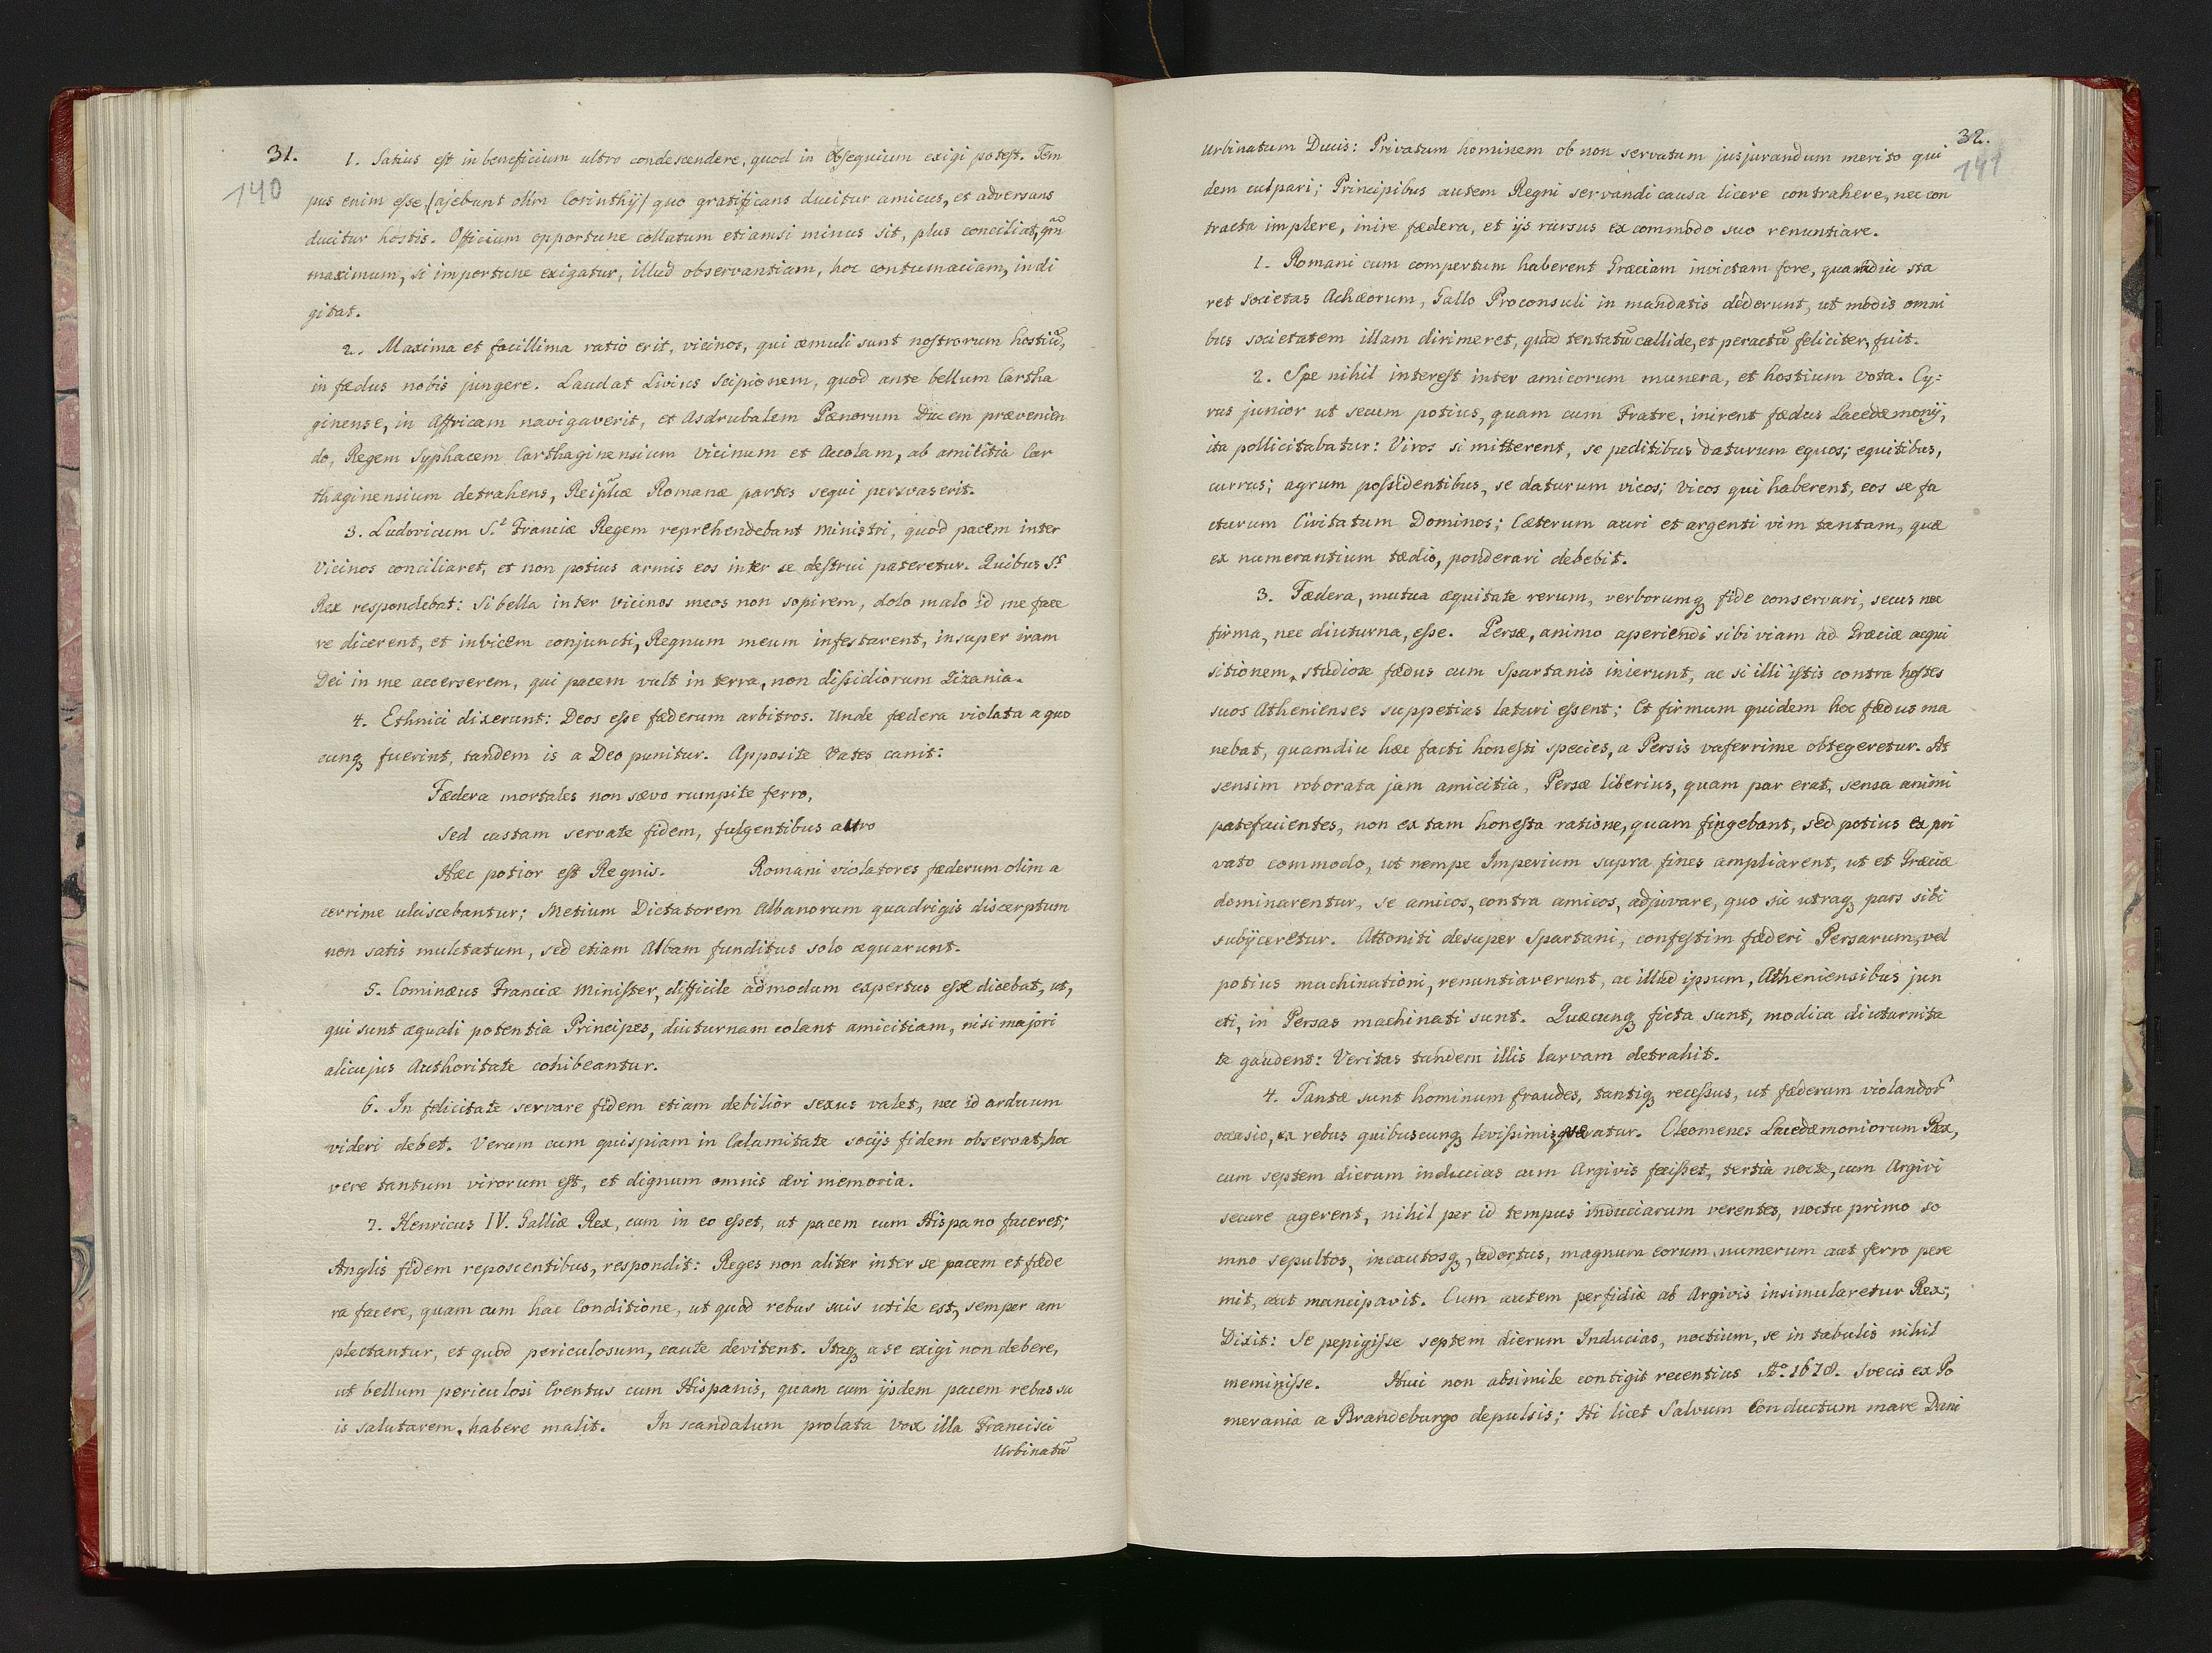 31.
140
1. Satius est in beneficium ultro condescendere, quod in obsequium exigi potest. Tem
pus enim esse, /ajebant olim Corinthij/ quo gratificans ducitur amicus, et adversans
ducitur hostis. Officium opportune collatum etiamsi minus sit, plus conciliat, qm̃
maximum, si importune exigatur, illud observantiam, hoc contumaciam, indi
gitat.
2. Maxima et facillima ratio erit, vicinos, qui æmuli sunt nostrorum hostiũ,
in fædus nobis jungere. Laudat Livius Scipionem, quod ante bellum Cartha
ginense, in Affricam navigaverit, et Asdrubalem Pænorum Ducem prævenien
do, Regem Syphacem Carthaginensium Vicinum et Accolam, ab amicitia Car
thaginensium detrahens, Reipłicæ Romanæ partes sequi persvaserit.
3. Ludovicum S.t Franciæ Regem reprehendebant Ministri, quod pacem inter
Vicinos conciliaret, et non potius armis eos inter se destrui pateretur. Quibus S.s
Rex respondebat: Si bella inter Vicinos meos non sopirem, dolo malo id me face
re dicerent, et invicem conjuncti, Regnum meum infestarent, insuper iram
Dei in me accerserem, qui pacem vult in terra, non dissidiorum Zizania.
4. Ethnici dixerunt: Deos esse fæderum arbitros. Unde fædera violata a quo
cunq fuerint, tandem is a Deo punitur. Apposite Vates canit:
Fædera mortales non sævo rumpite ferro,
Sed castam servate fidem, fulgentibus auro
Hæc potior est Regnis. Romani violatores fæderum olim a
cerrime ulciscebantur; Metium Dictatorem Albanorum quadrigis discerptum
non satis mulctatum, sed etiam Albam funditus solo æquarunt.
5. Cominæus Franciæ Minister, difficile admodum expertus esse dicebat, ut,
qui sunt æquali potentia Principes, diuturnam colant amicitiam, nisi majori
alicujus Authoritate cohibeantur.
6. In felicitate servare fidem etiam debilior sexus valet, nec id arduum
videri debet. Verum cum quispiam in Calamitate socijs fidem observat, hoc
vere tantum virorum est, et dignum omnis ævi memoria.
7. Henricus IV. Galliæ Rex, cum in eo esset, ut pacem cum Hispano faceret;
Anglis fidem reposcentibus, respondit: Reges non aliter inter se pacem et fæde
ra facere, quam cum hac Conditione, ut quod rebus suis utile est, semper am
plectantur, et quod periculosum, caute devitent. Itaq a se exigi non debere,
ut bellum periculosi Eventus cum Hispanis, quam cum ijsdem pacem rebus su
is salutarem, habere malit. In scandalum prolata vox illa Francisci
Urbinatũ
32.
141
Urbinatum Ducis: Privatum hominem ob non servatum jusjurandum merito qui
dem culpari; Principibus autem Regni servandi causa licere contrahere, nec con
tracta implere, inire fædera, et ijs rursus ex commodo suo renuntiare.
1. Romani cum compertum haberent Græciam invictam fore, quamdiu sta
ret societas Achæorum, Gallo Proconsuli in mandatis dederunt, ut modis omni
bus societatem illam dirimeret, quod tentatũ callide, et peractũ feliciter, fuit.
2. Spe nihil interest inter amicorum munera, et hostium vota. Cy=
rus junior ut secum potius, quam cum Fratre, inirent fædus Lacedæmonij,
ita pollicitabatur: Viros si mitterent, se peditibus daturum equos; equitibus,
currus; agrum possidentibus, se daturum vicos; Vicos qui haberent, eos se fa
cturum Civitatum Dominos; Cæterum auri et argenti vim tantam, quæ
ex numerantium tædio, ponderari debebit.
3. Fædera, mutua æquitate rerum, verborumq fide conservari, secus nec
firma, nec diuturna, esse. Persæ, animo aperiendi sibi viam ad Græciæ acqui
sitionem, studiose fædus cum Spartanis inierunt, ac si illi istis contra hostes
suos Athenienses suppetias laturi essent; Et firmum quidem hoc fædus ma
nebat, quamdiu hæc facti honesti species, a Persis vaferrime obtegeretur. At
sensim roborata jam amicitia, Persæ liberius, quam par erat, sensa animi
patefacientes, non ex tam honesta ratione, quam fingebant, sed potius ex pri
vato commodo, ut nempe Imperium supra fines ampliarent, ut et Græciæ
dominarentur, se amicos, contra amicos, adjuvare, quo sic utraq pars sibi
subijceretur. Attoniti desuper Spartani, confestim fæderi Persarum, vel
potius machinationi, renuntiaverunt, ac illud ipsum, Atheniensibus jun
cti, in Persas machinati sunt. Quæcunq ficta sunt, modica diuturnita
te gaudent: Veritas tandem illis larvam detrahit.
4. Tantæ sunt hominum fraudes, tantiq recessus, ut fæderum violandor̃
occasio, ex rebus quibuscunq levissimis, quæratur. Cleomenes Lacedæmoniorum Rex,
cum septem dierum inducias cum Argivis fecisset, tertia nocte, cum Argivi
secure agerent, nihil per id tempus induciarum verentes, noctu primo so
mno sepultos, incautosq, adortus, magnum eorum numerum aut ferro pere
mit, aut mancipavit. Cum autem perfidiæ ab Argivis insimularetur Rex;
Dixit: Se pepigisse septem dierum Inducias, noctium, se in tabulis nihil
meminisse. Huic non absimile contigit recentius A.o 1678. Svecis ex Po
merania a Brandeburgo depulsis; Hi licet Salvum Conductum mare Dani